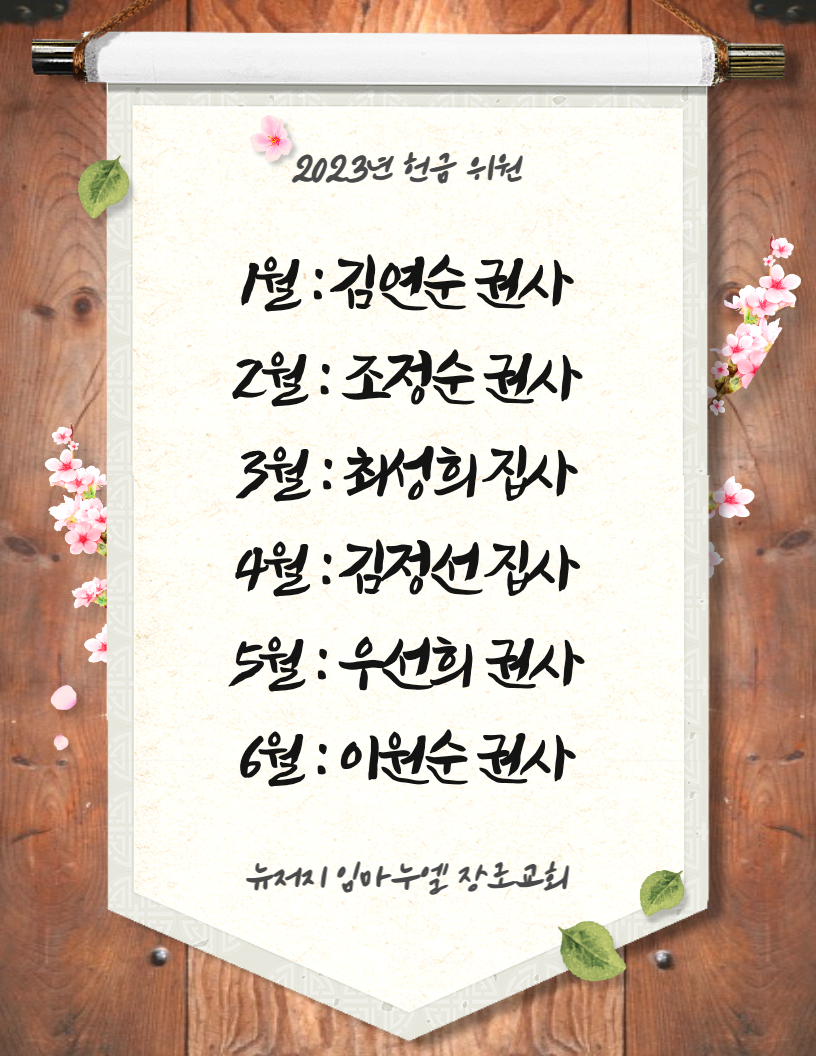 2023년 헌금 위원
1월 : 김연순 권사
2월 : 조정순 권사
3월 : 최성희 집사
4월 : 김정선 집사
5월 : 우선희 권사
6월 : 이원순 권사
뉴저지 임마누엘 장로교회